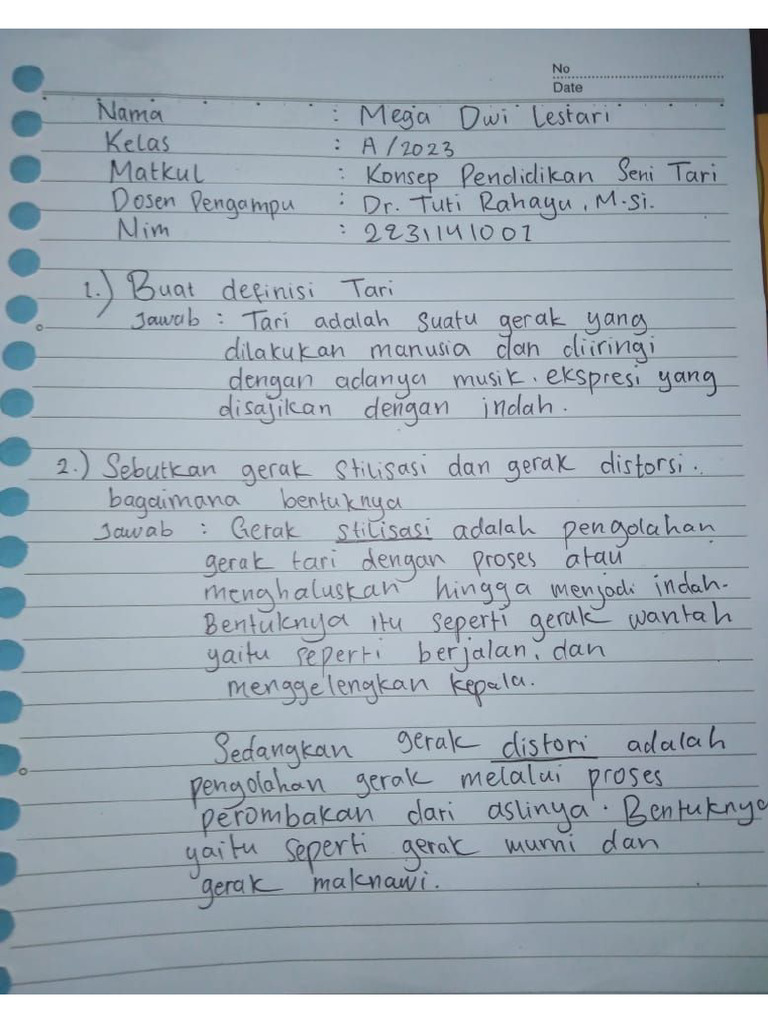 No
Date
Nama : Mega Dwi Lestari
Kelas : A/2023
Matkul : Konsep Pendidikan Seni Tari
Dosen Pengampu : Dr. Tuti Rahayu, M.si.
Nim : 2231141001
1.) Buat definisi Tari
Jawab : Tari adalah suatu gerak yang
dilakukan manusia dan diiringi
dengan adanya musik. ekspresi yang
disajikan dengan indah.
2.) Sebutkan gerak stilisasi dan gerak distorsi.
bagaimana bentuknya
Jawab : Gerak stilisasi adalah pengolahan
gerak tari dengan proses atau
menghaluskan hingga menjadi indah.
Bentuknya itu seperti gerak wantah
yaitu seperti berjalan, dan
menggelengkan kepala.
Sedangkan gerak distori adalah
pengolahan gerak melalui proses
perombakan dari aslinya. Bentuknya
yaitu seperti gerak murni dan
gerak maknawi.